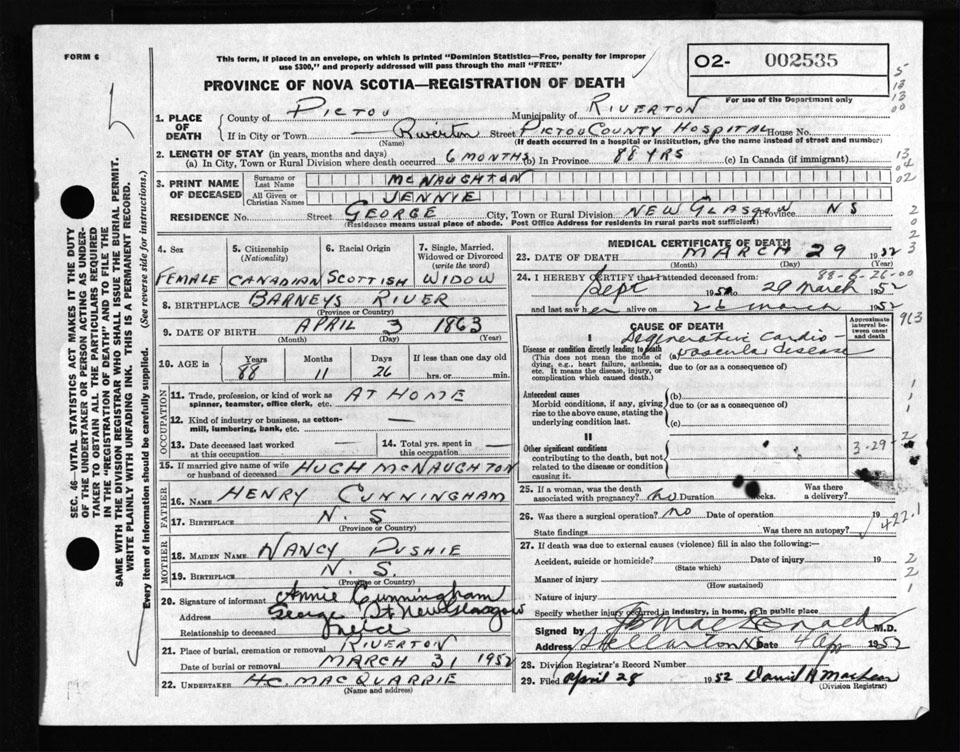 FORM 6
This form, if placed in an envelope, on which is printed "Dominion Statistics—Free, penalty for improper
use $300," and properly addressed will pass through the mail "FREE"
O2- 002535
For use of the Department only
PROVINCE OF NOVA SCOTIA—REGISTRATION OF DEATH
1. PLACE OF DEATH
County of PICTOU Municipality of RIVERTON
If in City or Town — Riverton Street PICTOU COUNTY HOSPITAL House No.
(Name) (If death occurred in a hospital or institution, give the name instead of street and number)
2. LENGTH OF STAY (in years, months and days)
(a) In City, Town or Rural Division where death occurred 6 MONTHS (b) In Province 88 YRS (c) In Canada (if immigrant)
3. PRINT NAME OF DECEASED
Surname or Last Name MCNAUGHTON
All Given or Christian Names JENNIE
RESIDENCE No. Street GEORGE City, Town or Rural Division NEW GLASGOW Province NS
(Residence means usual place of abode. Post Office Address for residents of rural parts not sufficient)
4. Sex 5. Citizenship (Nationality) 6. Racial Origin 7. Single, Married, Widowed or Divorced (write the word)
FEMALE CANADIAN SCOTTISH WIDOW
8. BIRTHPLACE BARNEYS RIVER
(Province or Country)
9. DATE OF BIRTH APRIL 3 1863
(Month) (Day) (Year)
10. AGE in Years 88 Months 11 Days 26 If less than one day old
hrs. or min.
OCCUPATION
11. Trade, profession, or kind of work as spinner, teamster, office clerk, etc. AT HOME
12. Kind of industry or business, as cotton-mill, lumbering, bank, etc. —
13. Date deceased last worked at this occupation — 14. Total yrs. spent in this occupation —
15. If married give name of wife or husband of deceased HUGH MCNAUGHTON
FATHER
16. NAME HENRY CUNNINGHAM
17. BIRTHPLACE N.S.
(Province or Country)
MOTHER
18. MAIDEN NAME NANCY DUSHIE
19. BIRTHPLACE N.S.
(Province or Country)
20. Signature of informant Annie Cunningham
Address George St New Glasgow
Relationship to deceased Neice
21. Place of burial, cremation or removal RIVERTON
Date of burial or removal MARCH 31 1952
22. UNDERTAKER H.C. MACQUARRIE
(Name and address)
MEDICAL CERTIFICATE OF DEATH
23. DATE OF DEATH MARCH 29 1952
(Month) (Day) (Year)
88-5-26-00
24. I HEREBY CERTIFY that I attended deceased from:
Sept 1951 to 29 March 1952
and last saw her alive on 26 March 1952
CAUSE OF DEATH
Approximate interval between onset and death
I
Disease or condition directly leading to death
(This does not mean the mode of dying, e.g., heart failure, asthenia, etc. It means the disease, injury, or complication which caused death.)
(a) Degenerative Cardio
vascular disease
due to (or as a consequence of)
Antecedent causes
Morbid conditions, if any, giving rise to the above cause, stating the underlying condition last.
(b)
due to (or as a consequence of)
(c)
II
Other significant conditions
contributing to the death, but not related to the disease or condition causing it.
3-29-2
25. If a woman, was the death associated with pregnancy? no Duration weeks. Was there a delivery?
26. Was there a surgical operation? no Date of operation 19
State findings Was there an autopsy?
422.1
27. If death was due to external causes (violence) fill in also the following:—
Accident, suicide or homicide? Date of injury 19
(State which)
Manner of injury
(How sustained)
Nature of injury
Specify whether injury occurred in industry, in home, or in public place
Signed by M.D.
Address Stellarton NS Date 4 Ap 1952
28. Division Registrar's Record Number
29. Filed April 28 1952 Daniel A MacLean
(Division Registrar)
SEC. 46—VITAL STATISTICS ACT MAKES IT THE DUTY
OF THE UNDERTAKER OR PERSON ACTING AS UNDER-
TAKER TO OBTAIN ALL THE PARTICULARS REQUIRED
IN THE "REGISTRATION OF DEATH" AND TO FILE THE
SAME WITH THE DIVISION REGISTRAR WHO SHALL ISSUE THE BURIAL PERMIT.
WRITE PLAINLY WITH UNFADING INK. THIS IS A PERMANENT RECORD.
Every item of information should be carefully supplied. (See reverse side for instructions.)